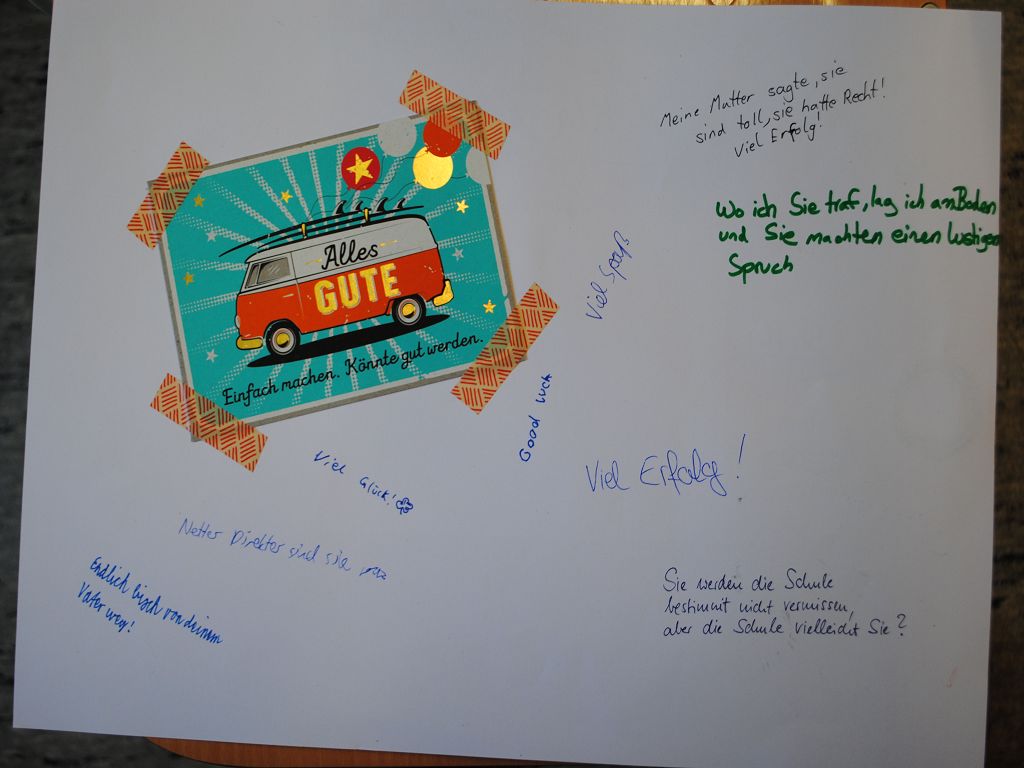 Alles
GUTE
Einfach machen. Könnte gut werden.
Meine Mutter sagte, sie
sind toll, sie hatte Recht!
Viel Erfolg!
Wo ich Sie traf, lag ich am Boden
und Sie machten einen lustigen
Spruch
Viel Spaß
Good luck
Viel Erfolg!
Viel Glück!
Netter Direktor sind sie
Endlich bisch von deinem
Vater weg!
Sie werden die Schule
bestimmt nicht vermissen,
aber die Schule vielleicht Sie?